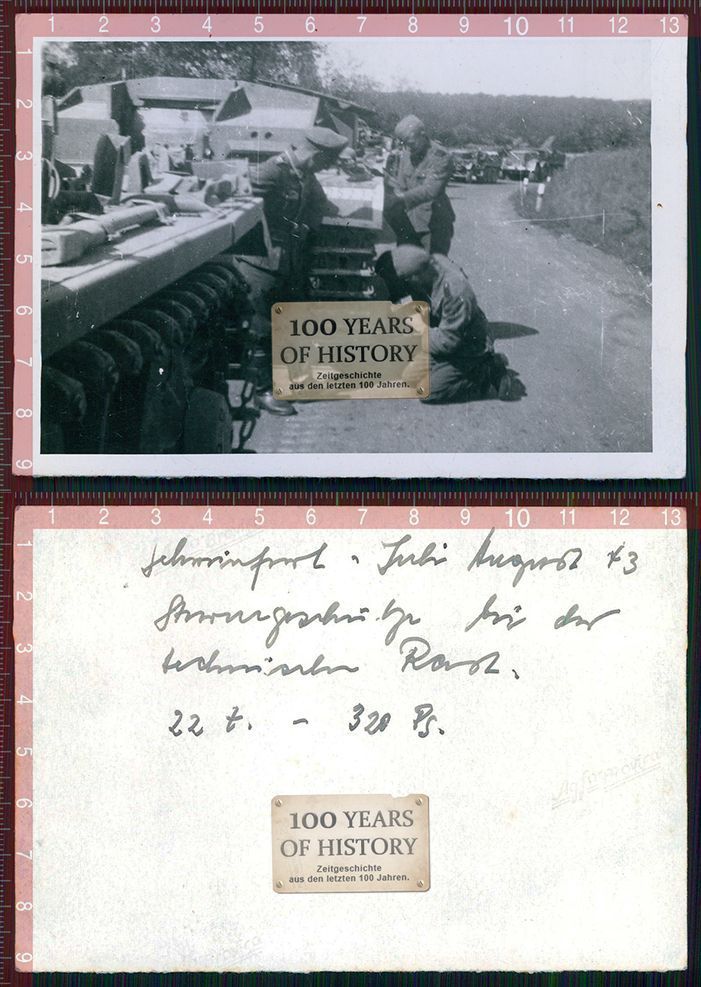 1 2 3 4 5 6 7 8 9 10 11 12 13
2
3
4
5
6
7
8
9
100 YEARS
OF HISTORY
Zeitgeschichte
aus den letzten 100 Jahren.
1 2 3 4 5 6 7 8 9 10 11 12 13
1
2
3
4
5
6
7
8
9
Schweinfurt - Juli August 43
Sturmgeschütze bei der
technischen Rast.
22 t. - 320 Ps.
Agfa Brovira
100 YEARS
OF HISTORY
Zeitgeschichte
aus den letzten 100 Jahren.